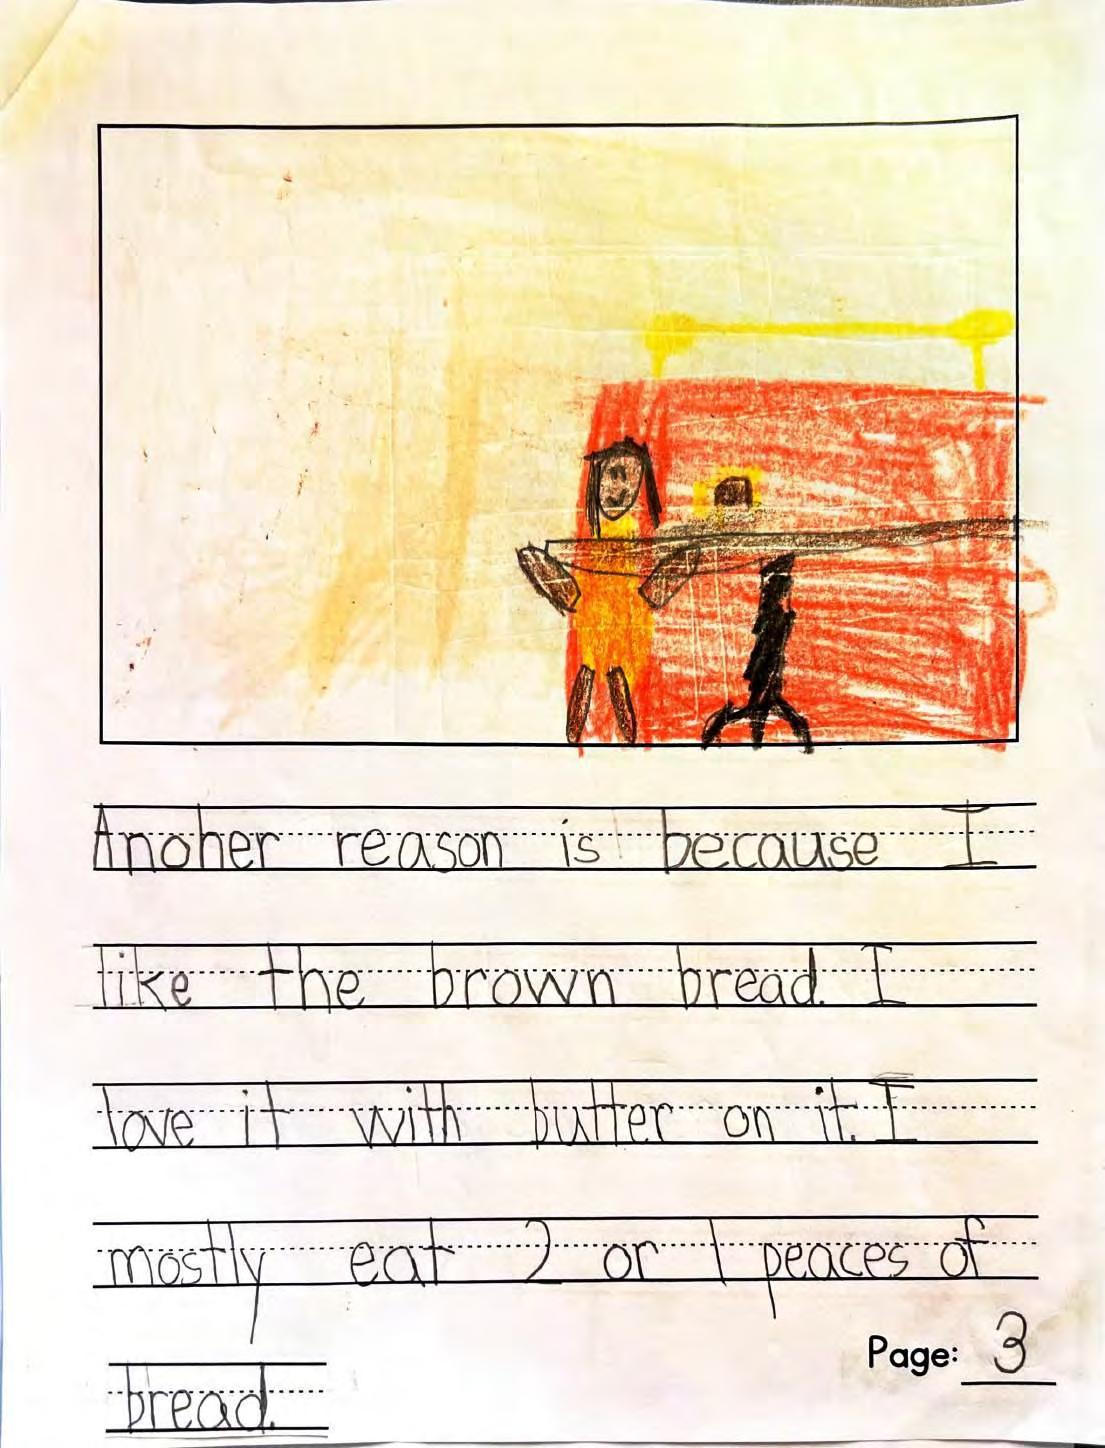 Anoher reason is because I
like the brown bread. I
love it with butter on it. I
mostly eat 2 or 1 peaces of
Page: 3
bread.